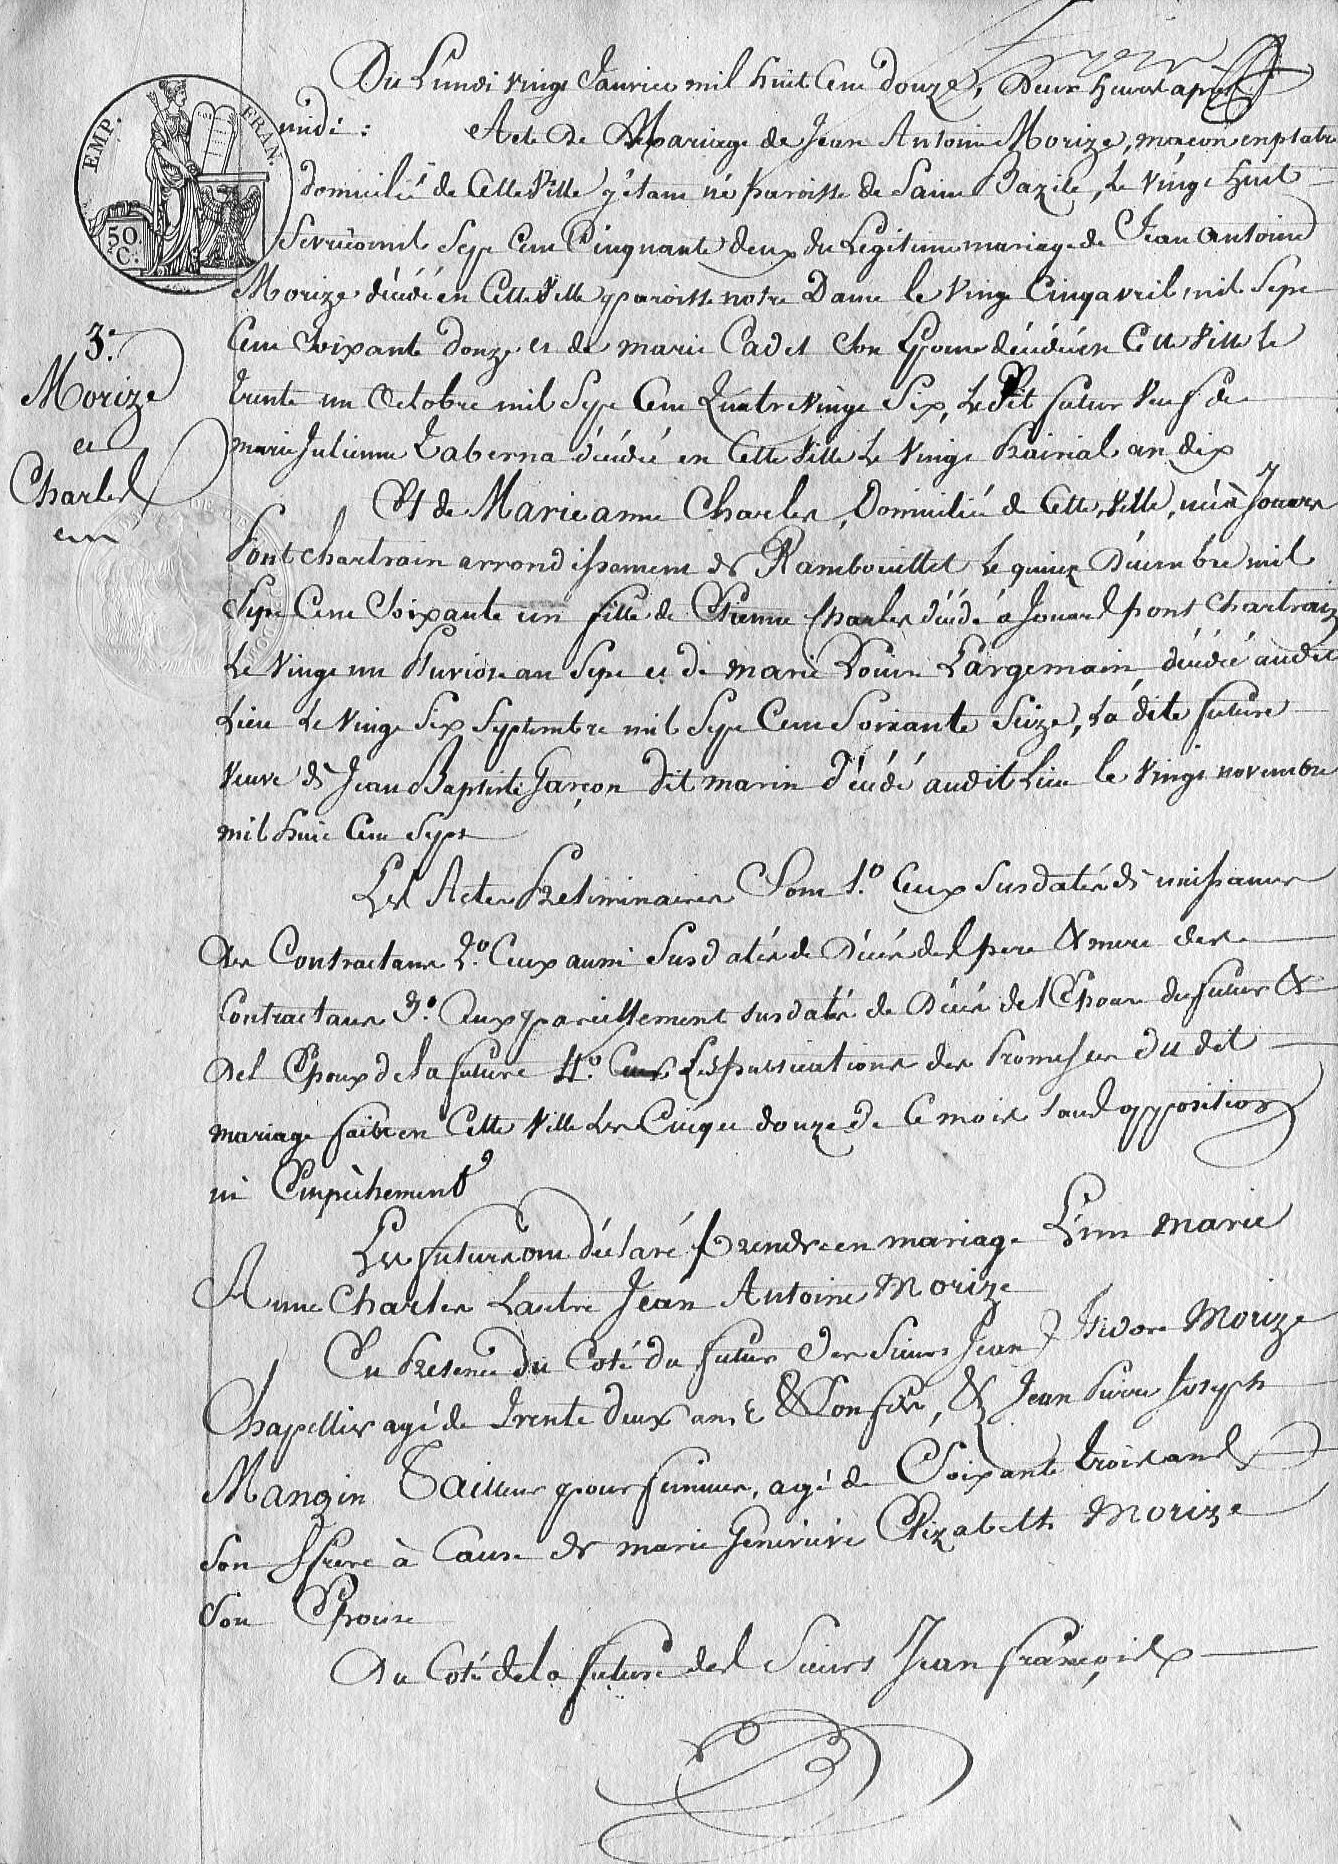 Du Lundi vingt Janvier mil huit Cent douze, Deux heures après
midi : Acte De Mariage de Jean Antoine Morize, macon en platre
domicilié de Cette Ville y étant né paroisse de Saint Bazile, Le vingt huit
fevrier mil Sept Cent Cinquante deux du Legitime mariage de Jean Antoine
Morize décédé en Cette Ville paroisse notre Dame le vingt Cinq avril mil Sept
Cent Soixante douze et de marie Cadet Son Epouse décédée en Cette Ville le
trente un Octobre mil Sept Cent Quatre vingt Six, Le Dit futur Veuf de
marie Julienne Taberna décédée en Cette Ville Le Vingt Prairial an dix
Et de Marie anne Charles, Domiciliée de Cette Ville, née à Jouars
Pontchartrain arrondissement de Rambouillet Le quinze Décembre mil
Sept Cent Soixante un fille de Etienne Charles décédé à Jouars pont Chartrain
Le Vingt un Pluviose an Sept et de marie Louise Largemain, décédée audit
Lieu Le Vingt Six Septembre mil Sept Cent Soixante Seize, La dite future
veuve de Jean Baptiste Garçon dit marin décédé audit Lieu le Vingt novembre
mil huit Cent Sept
Les Actes Preliminaires Sont 1.° Ceux Susdatés de naissance
des Contractans 2.° Ceux aussi Susdatés de Décès des pere & mere des
Contractans 3.° Ceux pareillement susdatés de Décès de l'Epouse du futur &
del Epoux de la future 4.° Les publications des Promesses du dit
mariage faites en Cette Ville Les Cinq et douze de Ce mois sans opposition
ni Empêchement
Les futurs ont déclaré prendre en mariage L'un Marie
Anne Charles L'autre Jean Antoine Morize
En Presence Du Coté du futur Des Sieurs Jean Isidore Morize
Chapellier agé de trente deux ans Son fils, & Jean Pierre Joseph
Mangin Tailleur pour femmes, agé de Soixante trois ans
Son Bfrere à Cause de marie Genevieve Elizabeth Morize
Son Epouse
Du Coté de la future des Sieurs Jean François
EMP. FRAN.
50 C.
3.e
Morize
et
Charles